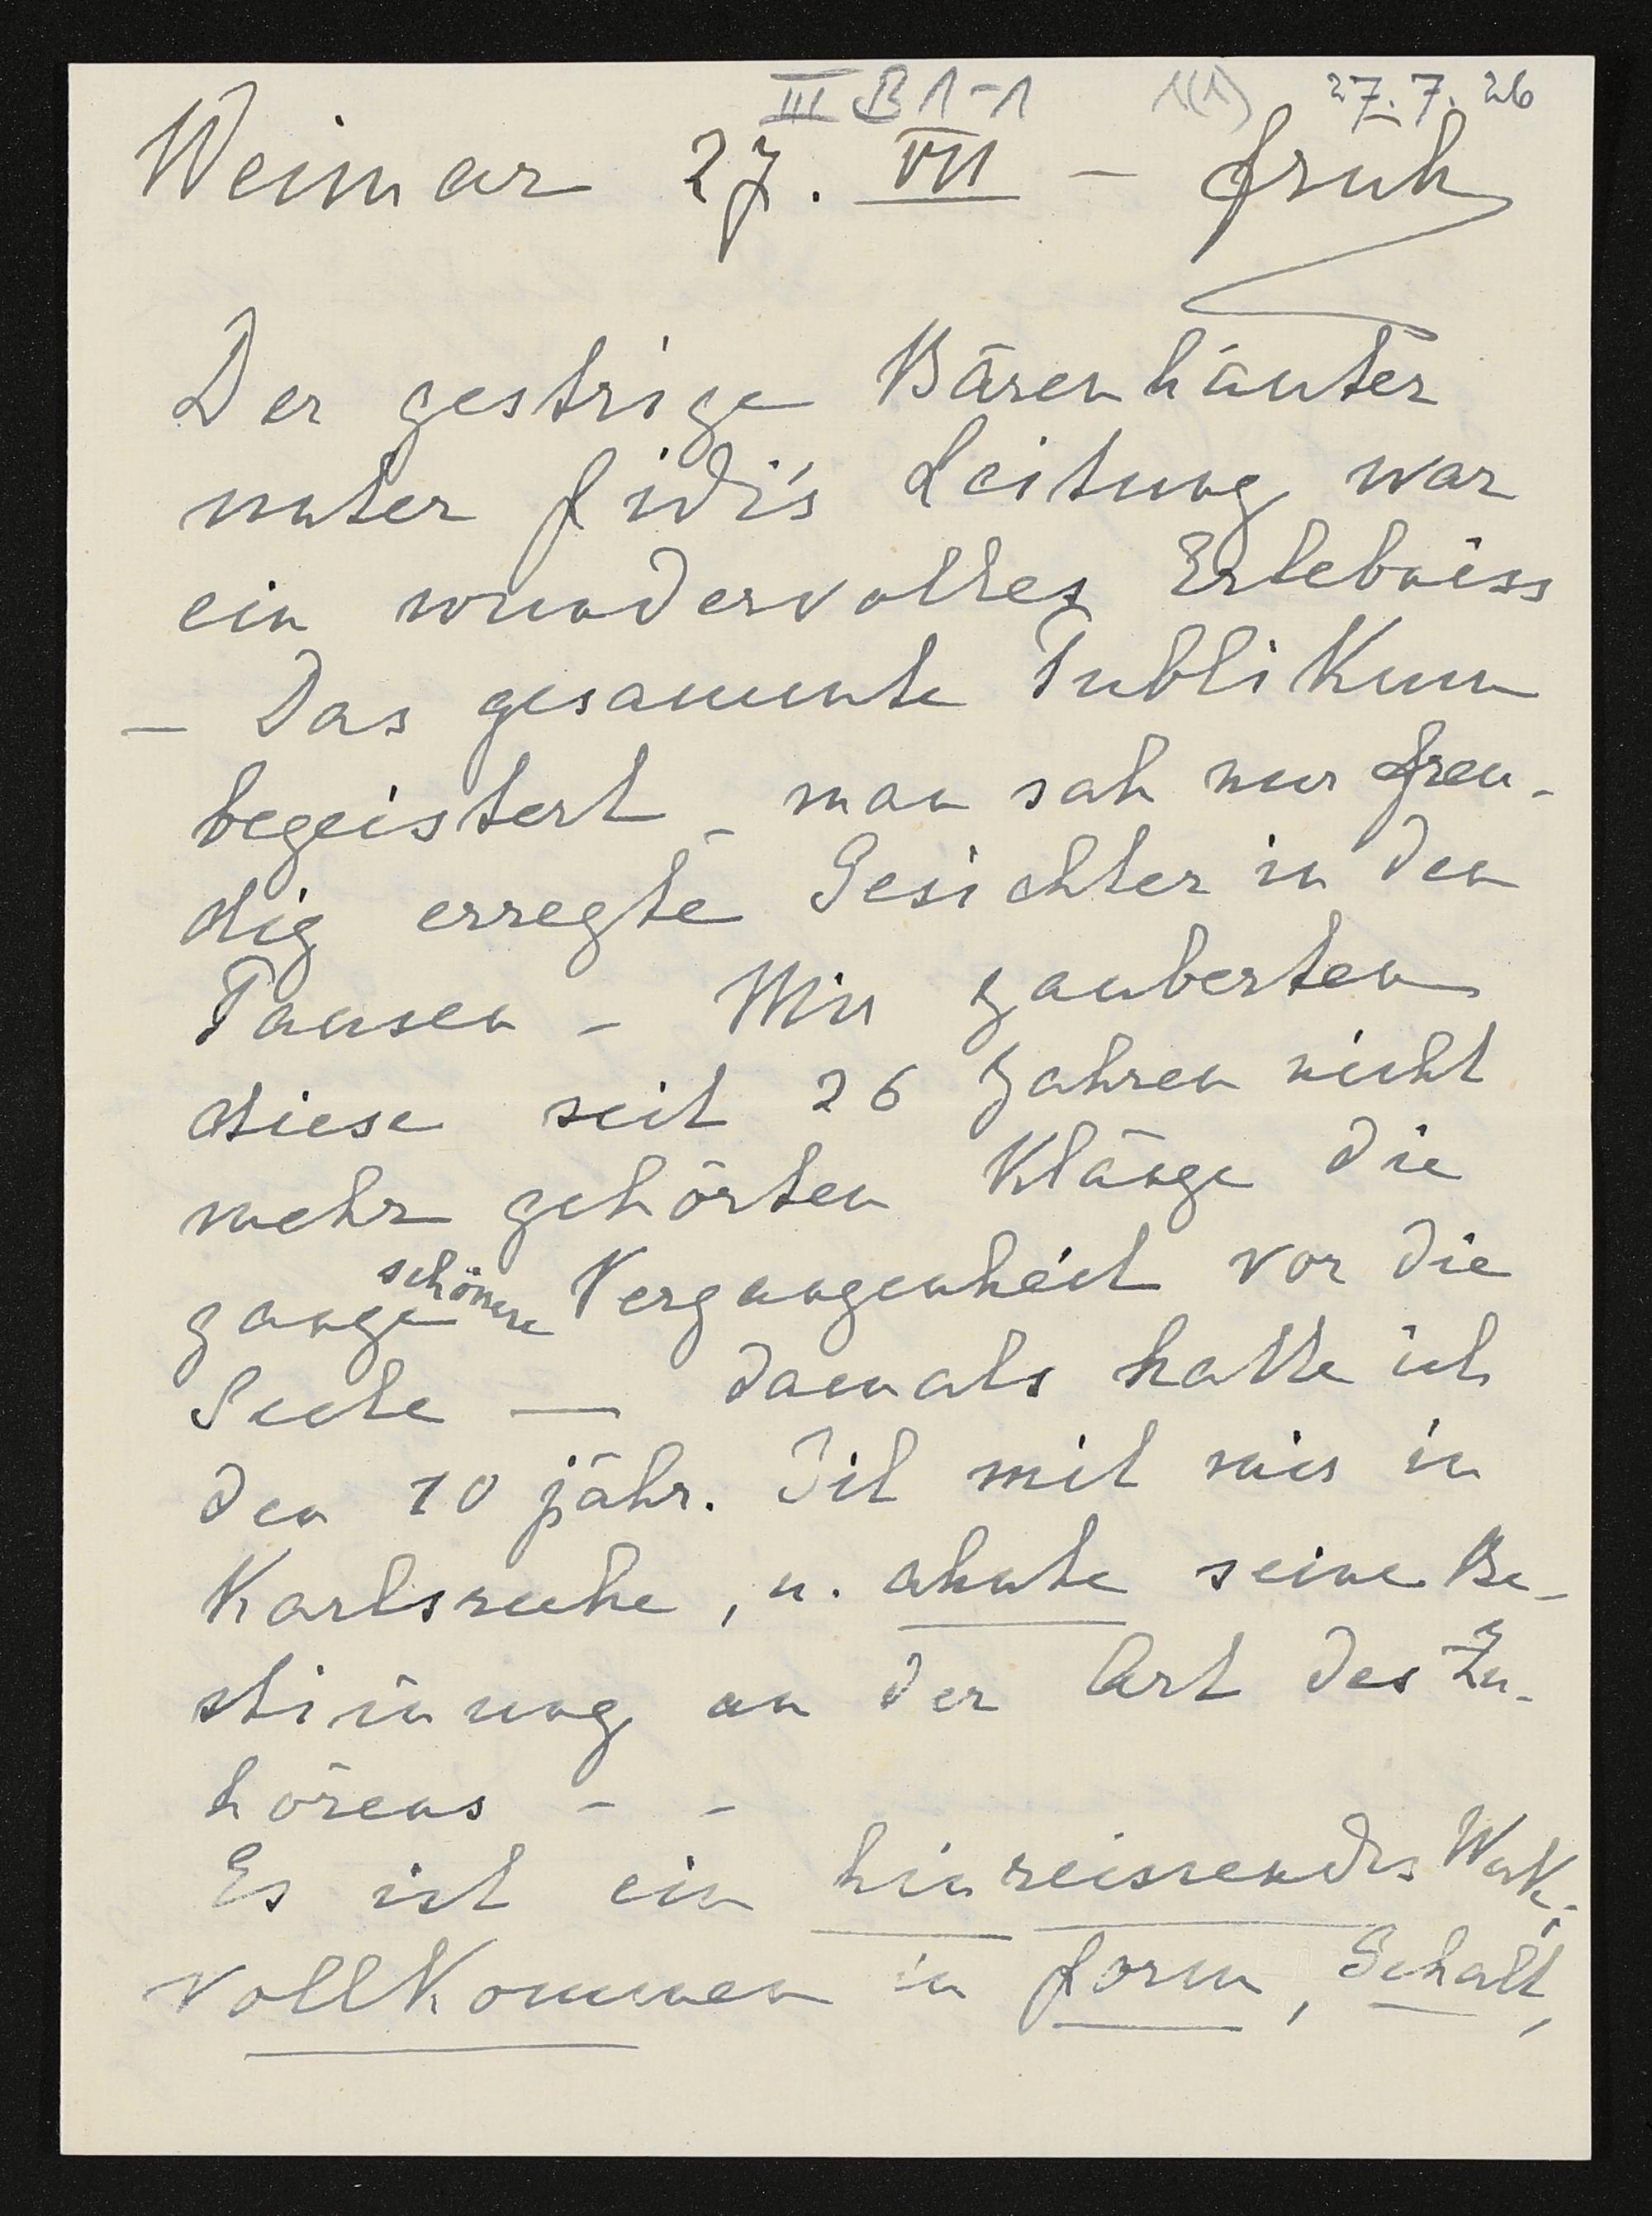 III B 1-1 1(1) 27.7.26
Weimar 27. VII – früh
Der gestrige Bärenhäuter
unter Fidi's Leitung war
ein wundervolles Erlebniss
– Das gesammte Publikum
begeistert – man sah nur freu-
dig erregte Gesichter in den
Pausen – Mir zauberten
diese seit 26 Jahren nicht
mehr gehörten Klänge die
ganze schönere Vergangenheit vor die
Seele — damals hatte ich
den 10 jähr. Til mit mir in
Karlsruhe, u. ahnte seine Be-
stim̄ung an der Art des Zu-
hörens – –
Es ist ein hinreissendes Werk;
vollkommen in Form, Gehalt,